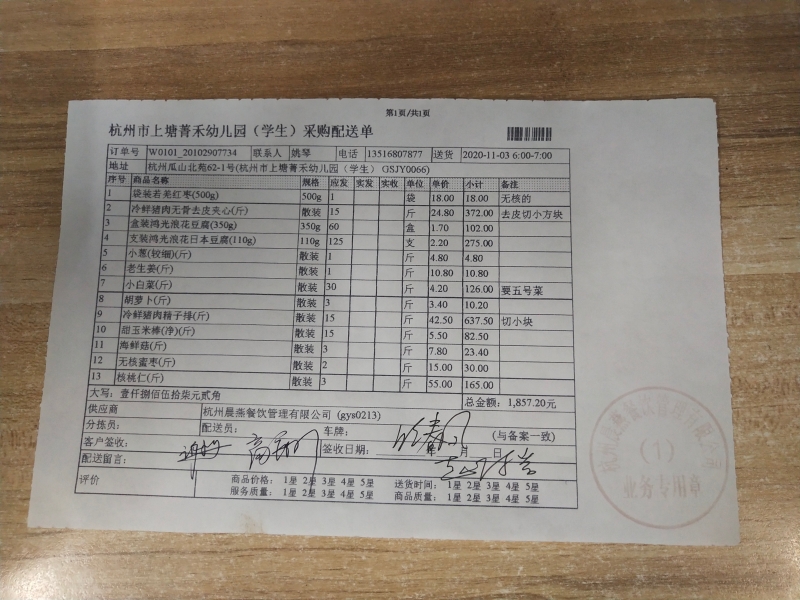 第1页/共1页
杭州市上塘菁禾幼儿园（学生）采购配送单
订单号 W0101_20102907734 联系人 姚琴 电话 13516807877 送货 2020-11-03 6:00-7:00
地址 杭州瓜山北苑62-1号(杭州市上塘菁禾幼儿园（学生） GSJY0066)
序号 商品名称 规格 应发 实发 实收 单位 单价 小计 备注
1 袋装若羌红枣(500g) 500g 1 袋 18.00 18.00 无核的
2 冷鲜猪肉无骨去皮夹心(斤) 散装 15 斤 24.80 372.00 去皮切小方块
3 盒装鸿光浪花豆腐(350g) 350g 60 盒 1.70 102.00
4 支装鸿光浪花日本豆腐(110g) 110g 125 支 2.20 275.00
5 小葱(较细)(斤) 散装 1 斤 4.80 4.80
6 老生姜(斤) 散装 1 斤 10.80 10.80
7 小白菜(斤) 散装 30 斤 4.20 126.00 要五号菜
8 胡萝卜(斤) 散装 3 斤 3.40 10.20
9 冷鲜猪肉精子排(斤) 散装 15 斤 42.50 637.50 切小块
10 甜玉米棒(净)(斤) 散装 15 斤 5.50 82.50
11 海鲜菇(斤) 散装 3 斤 7.80 23.40
12 无核蜜枣(斤) 散装 2 斤 15.00 30.00
13 核桃仁(斤) 散装 3 斤 55.00 165.00
大写：壹仟捌佰伍拾柒元贰角 总金额：1,857.20元
供应商 杭州晨燕餐饮管理有限公司 (gys0213)
分拣员： 配送员： 车牌： (与备案一致)
客户签收： 签收日期： 年 月 日
配送留言：
评价 商品价格： 1星 2星 3星 4星 5星 送货时间： 1星 2星 3星 4星 5星
服务质量： 1星 2星 3星 4星 5星 商品质量： 1星 2星 3星 4星 5星
杭州晨燕餐饮管理有限公司
(1)
业务专用章